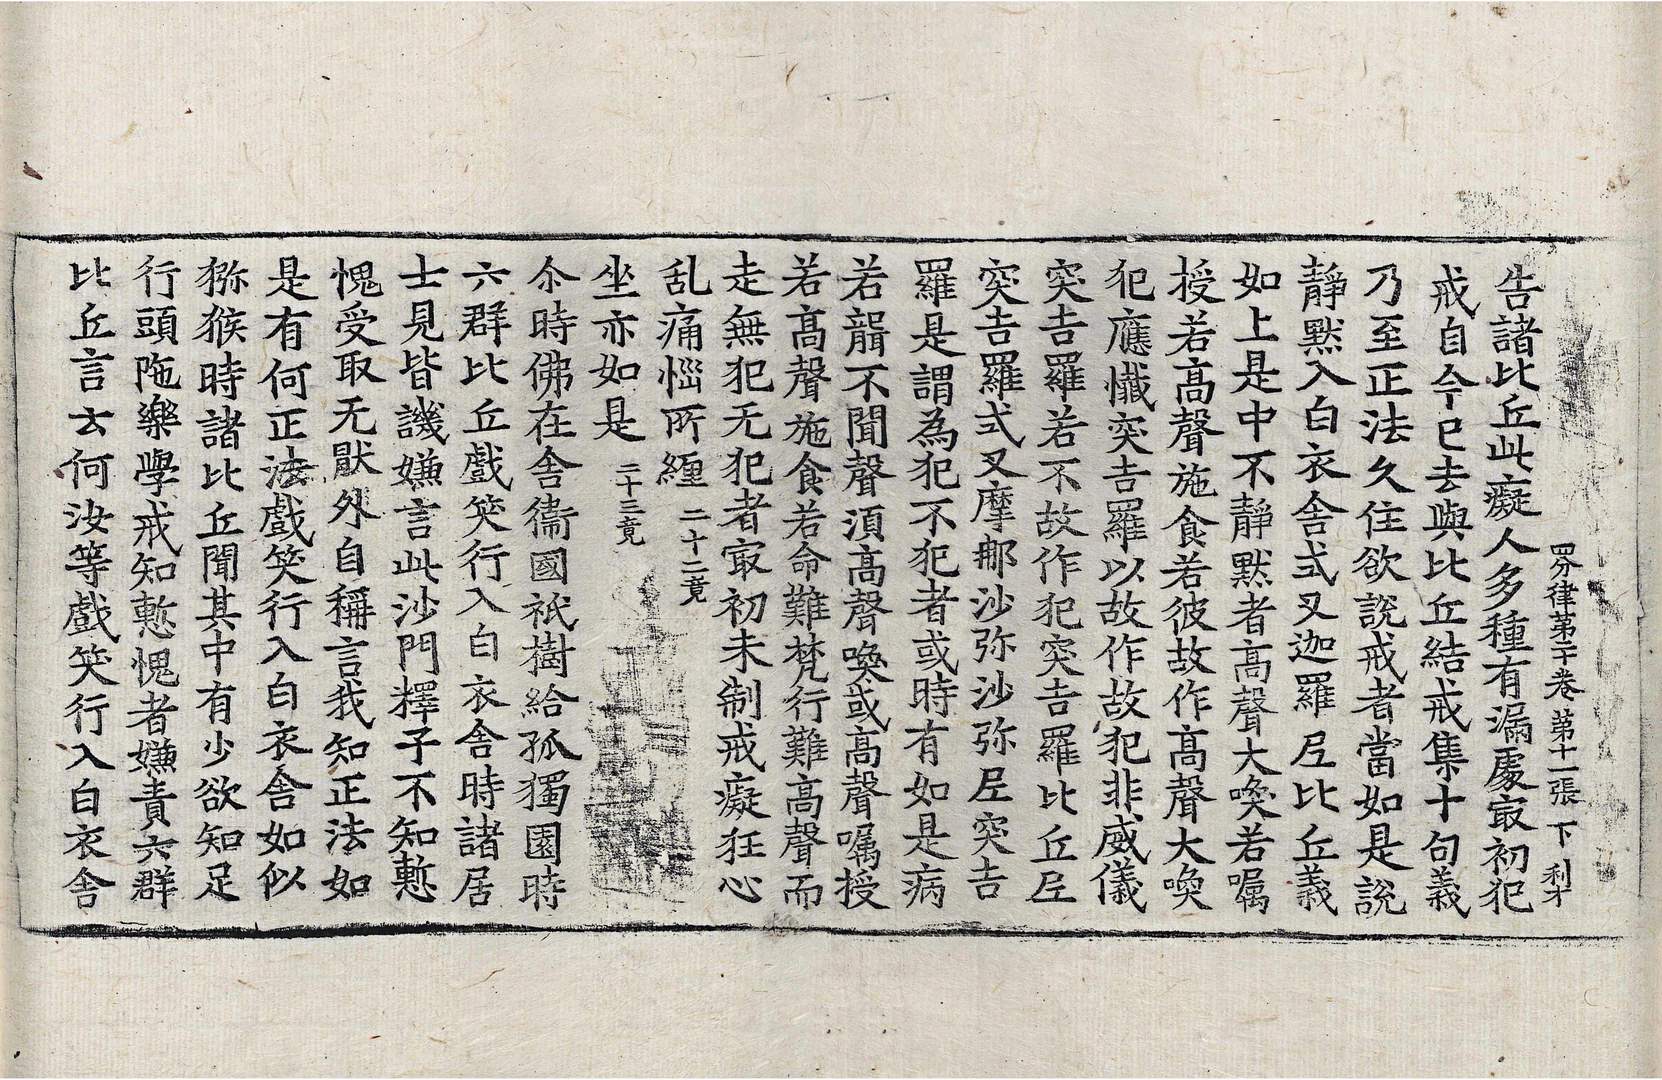 四分律第二十卷 第十一張 下 利才
告諸比丘此癡人多種有漏處冣初犯
戒自今已去與比丘結戒集十句義
乃至正法久住欲說戒者當如是說
靜默入白衣舍式叉迦羅尼比丘義
如上是中不靜默者高聲大喚若囑
授若高聲施食若彼故作高聲大喚
犯應懺突吉羅以故作故犯非威儀
突吉羅若不故作犯突吉羅比丘尼
突吉羅式叉摩那沙弥沙弥尼突吉
羅是謂為犯不犯者或時有如是病
若聾不聞聲湏高聲喚或高聲囑授
若高聲施食若命難梵行難高聲而
走無犯无犯者冣初未制戒癡狂心
乱痛惱所纏 二十二竟
坐亦如是 二十三竟
尒時佛在舍衛國祇樹給孤獨園時
六群比丘戲笑行入白衣舍時諸居
士見皆譏嫌言此沙門釋子不知慙
愧受取无猒外自稱言我知正法如
是有何正法戲笑行入白衣舍如似
獼猴時諸比丘聞其中有少欲知足
行頭陁樂學戒知慙愧者嫌責六群
比丘言云何汝等戲笑行入白衣舍